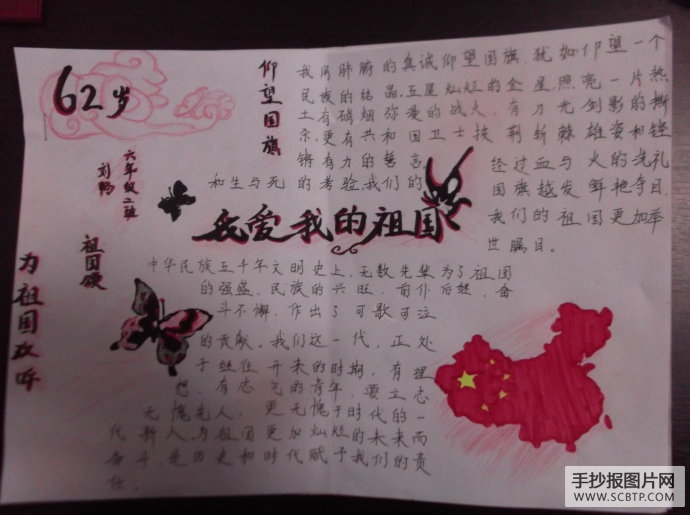 62岁
六年级二班
刘畅
仰望国旗
我用肺腑的真诚仰望国旗,犹如仰望一个
民族的结晶,五星灿烂的金星,照亮一片热
土有硝烟弥漫的战火,有刀光剑影的撕
杀,更有共和国卫士披荆斩棘雄姿和铿
锵有力的誓言。
经过血与火的洗礼
和生与死的考验,我们的
国旗越发鲜艳夺目,
我们的祖国更加举
世瞩目。
我爱我的祖国
祖国颂
为祖国欢呼
中华民族五千年文明史上,无数先辈为了祖国
的强盛、民族的兴旺,前仆后继,奋
斗不懈,作出了可歌可泣
的贡献。我们这一代,正处
于继往开来的时期,有理
想、有志气的青年,要立志
无愧先人,更无愧于时代的一
代新人,为祖国更加灿烂的未来而
奋斗是历史和时代赋予我们的责
任.
手抄报图片网
WWW.SCBTP.COM